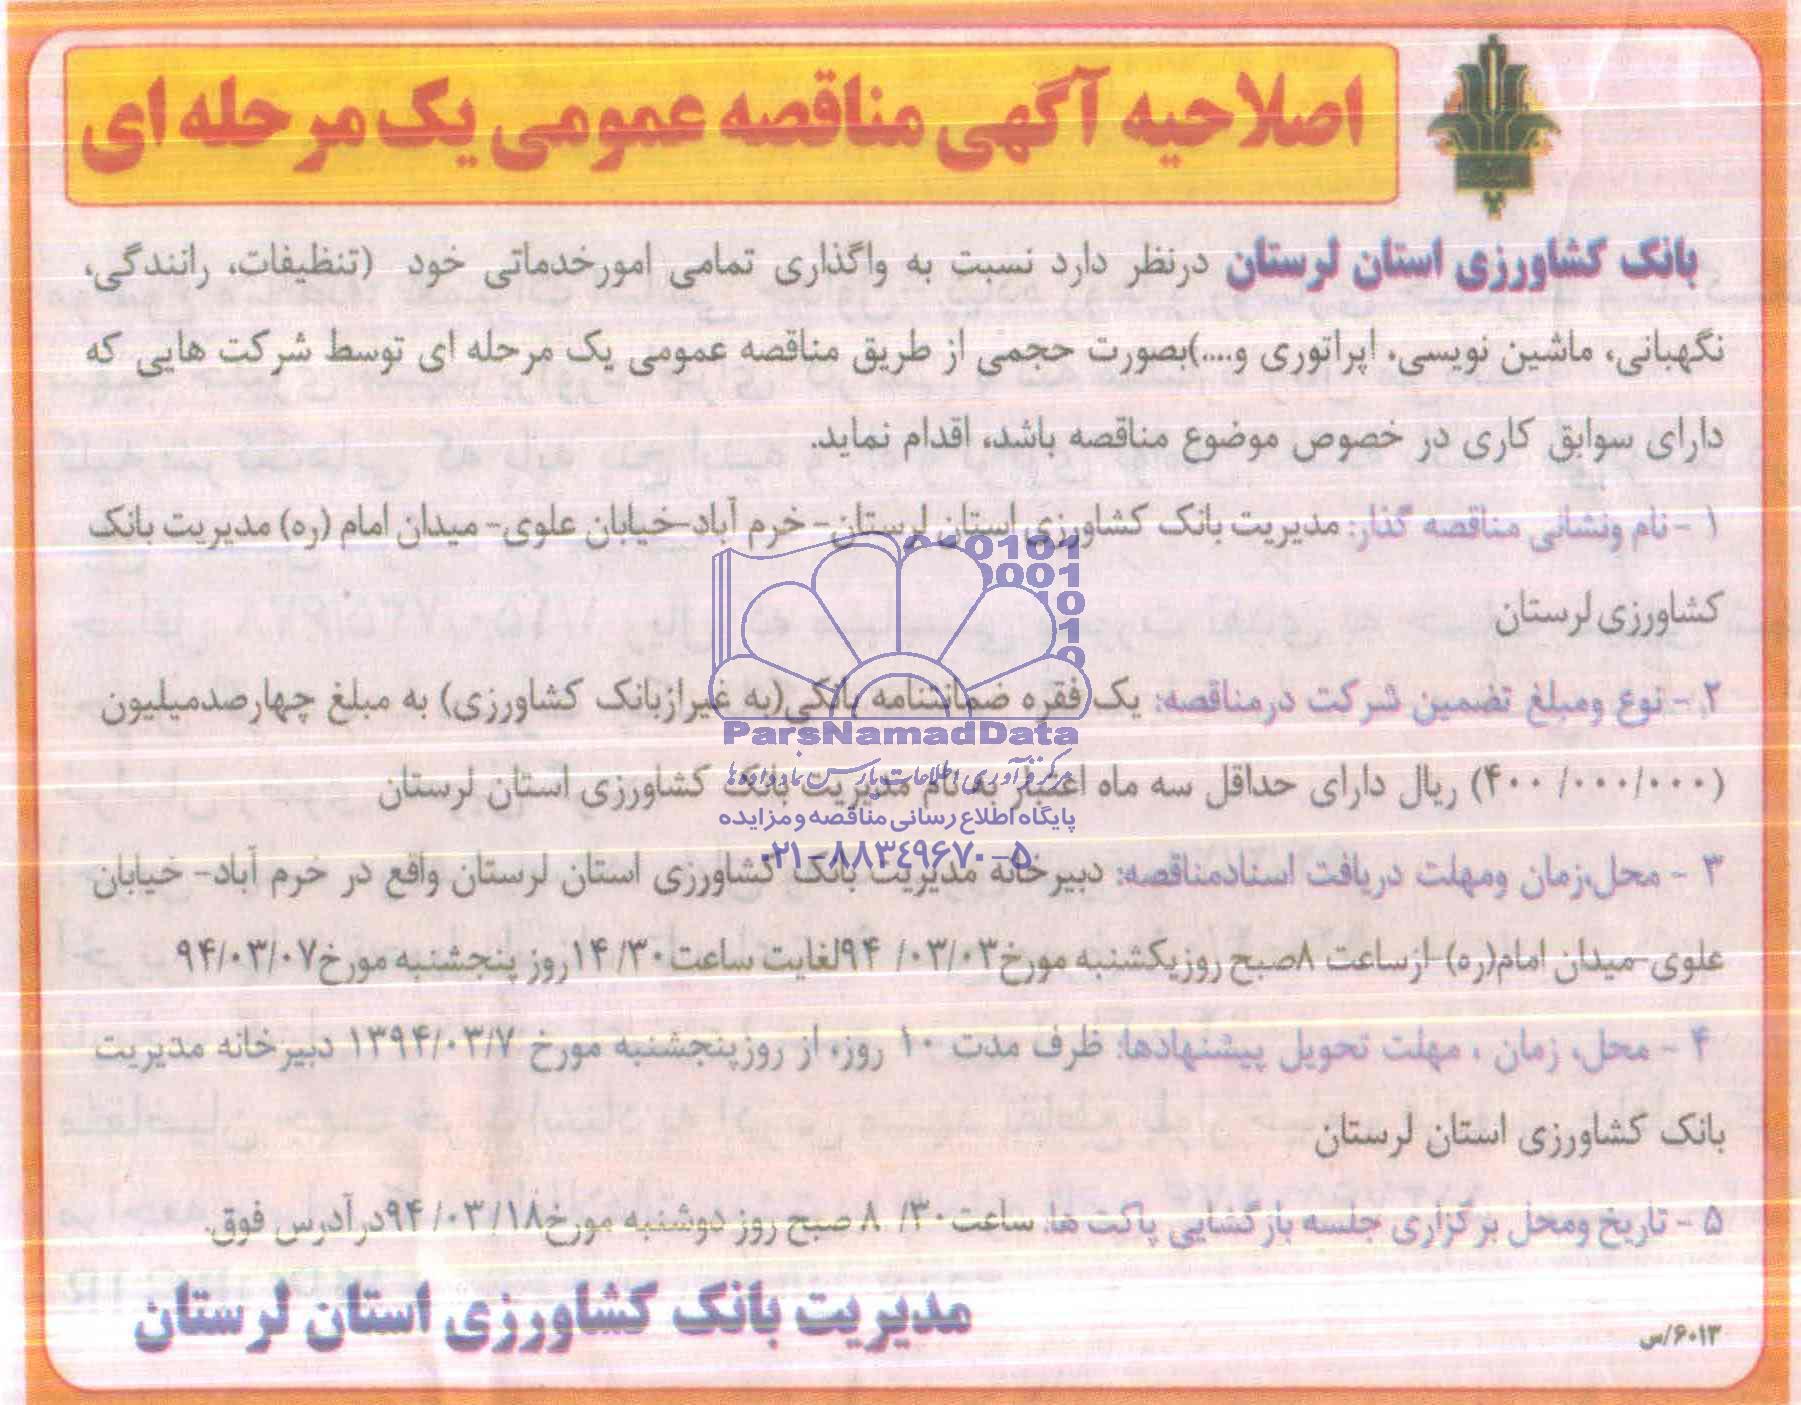 اصلاحیه آگهی مناقصه عمومی یک مرحله ای
بانک کشاورزی استان لرستان درنظر دارد نسبت به واگذاری تمامی امورخدماتی خود (تنظیفات، رانندگی،
نگهبانی، ماشین نویسی، اپراتوری و....)بصورت حجمی از طریق مناقصه عمومی یک مرحله ای توسط شرکت هایی که
دارای سوابق کاری در خصوص موضوع مناقصه باشد، اقدام نماید.
۱ - نام ونشانی مناقصه گذار: مدیریت بانک کشاورزی استان لرستان- خرم آباد-خیابان علوی- میدان امام (ره) مدیریت بانک
کشاورزی لرستان
۲ - نوع ومبلغ تضمین شرکت درمناقصه: یک فقره ضمانتنامه بانکی(به غیرازبانک کشاورزی) به مبلغ چهارصدمیلیون
(۴۰۰/۰۰۰/۰۰۰) ریال دارای حداقل سه ماه اعتبار به نام مدیریت بانک کشاورزی استان لرستان
۳ - محل،زمان ومهلت دریافت اسنادمناقصه: دبیرخانه مدیریت بانک کشاورزی استان لرستان واقع در خرم آباد- خیابان
علوی-میدان امام(ره)-ازساعت ۸صبح روزیکشنبه مورخ۹۴/۰۳/۰۳لغایت ساعت۱۴/۳۰روز پنجشنبه مورخ۹۴/۰۳/۰۷
۴ - محل، زمان ، مهلت تحویل پیشنهادها: ظرف مدت ۱۰ روز، از روزپنجشنبه مورخ ۱۳۹۴/۰۳/۷ دبیرخانه مدیریت
بانک کشاورزی استان لرستان
۵ - تاریخ ومحل برگزاری جلسه بازگشایی پاکت ها: ساعت۸/۳۰ صبح روز دوشنبه مورخ۹۴/۰۳/۱۸درآدرس فوق.
مدیریت بانک کشاورزی استان لرستان
۶۰۱۳/س
ParsNamadData
مرکز فرآوری اطلاعات پارس نماد داده ها
پایگاه اطلاع رسانی مناقصه و مزایده
۰۲۱-۸۸۳۴۹۶۷۰-۵